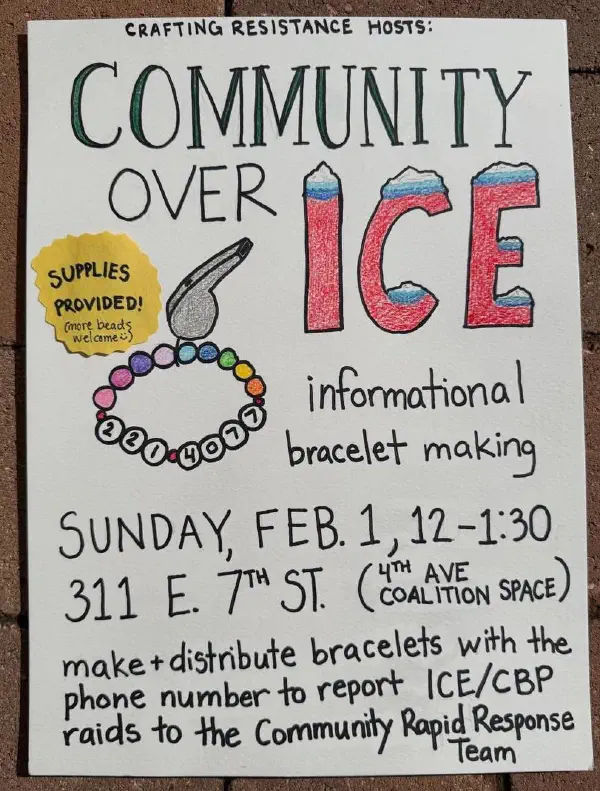 CRAFTING RESISTANCE HOSTS:
COMMUNITY
OVER ICE
SUPPLIES
PROVIDED!
(more beads
welcome :))
221 4077
informational
bracelet making
SUNDAY, FEB. 1, 12-1:30
311 E. 7TH ST. (4TH AVE
COALITION SPACE)
make + distribute bracelets with the
phone number to report ICE/CBP
raids to the Community Rapid Response
Team